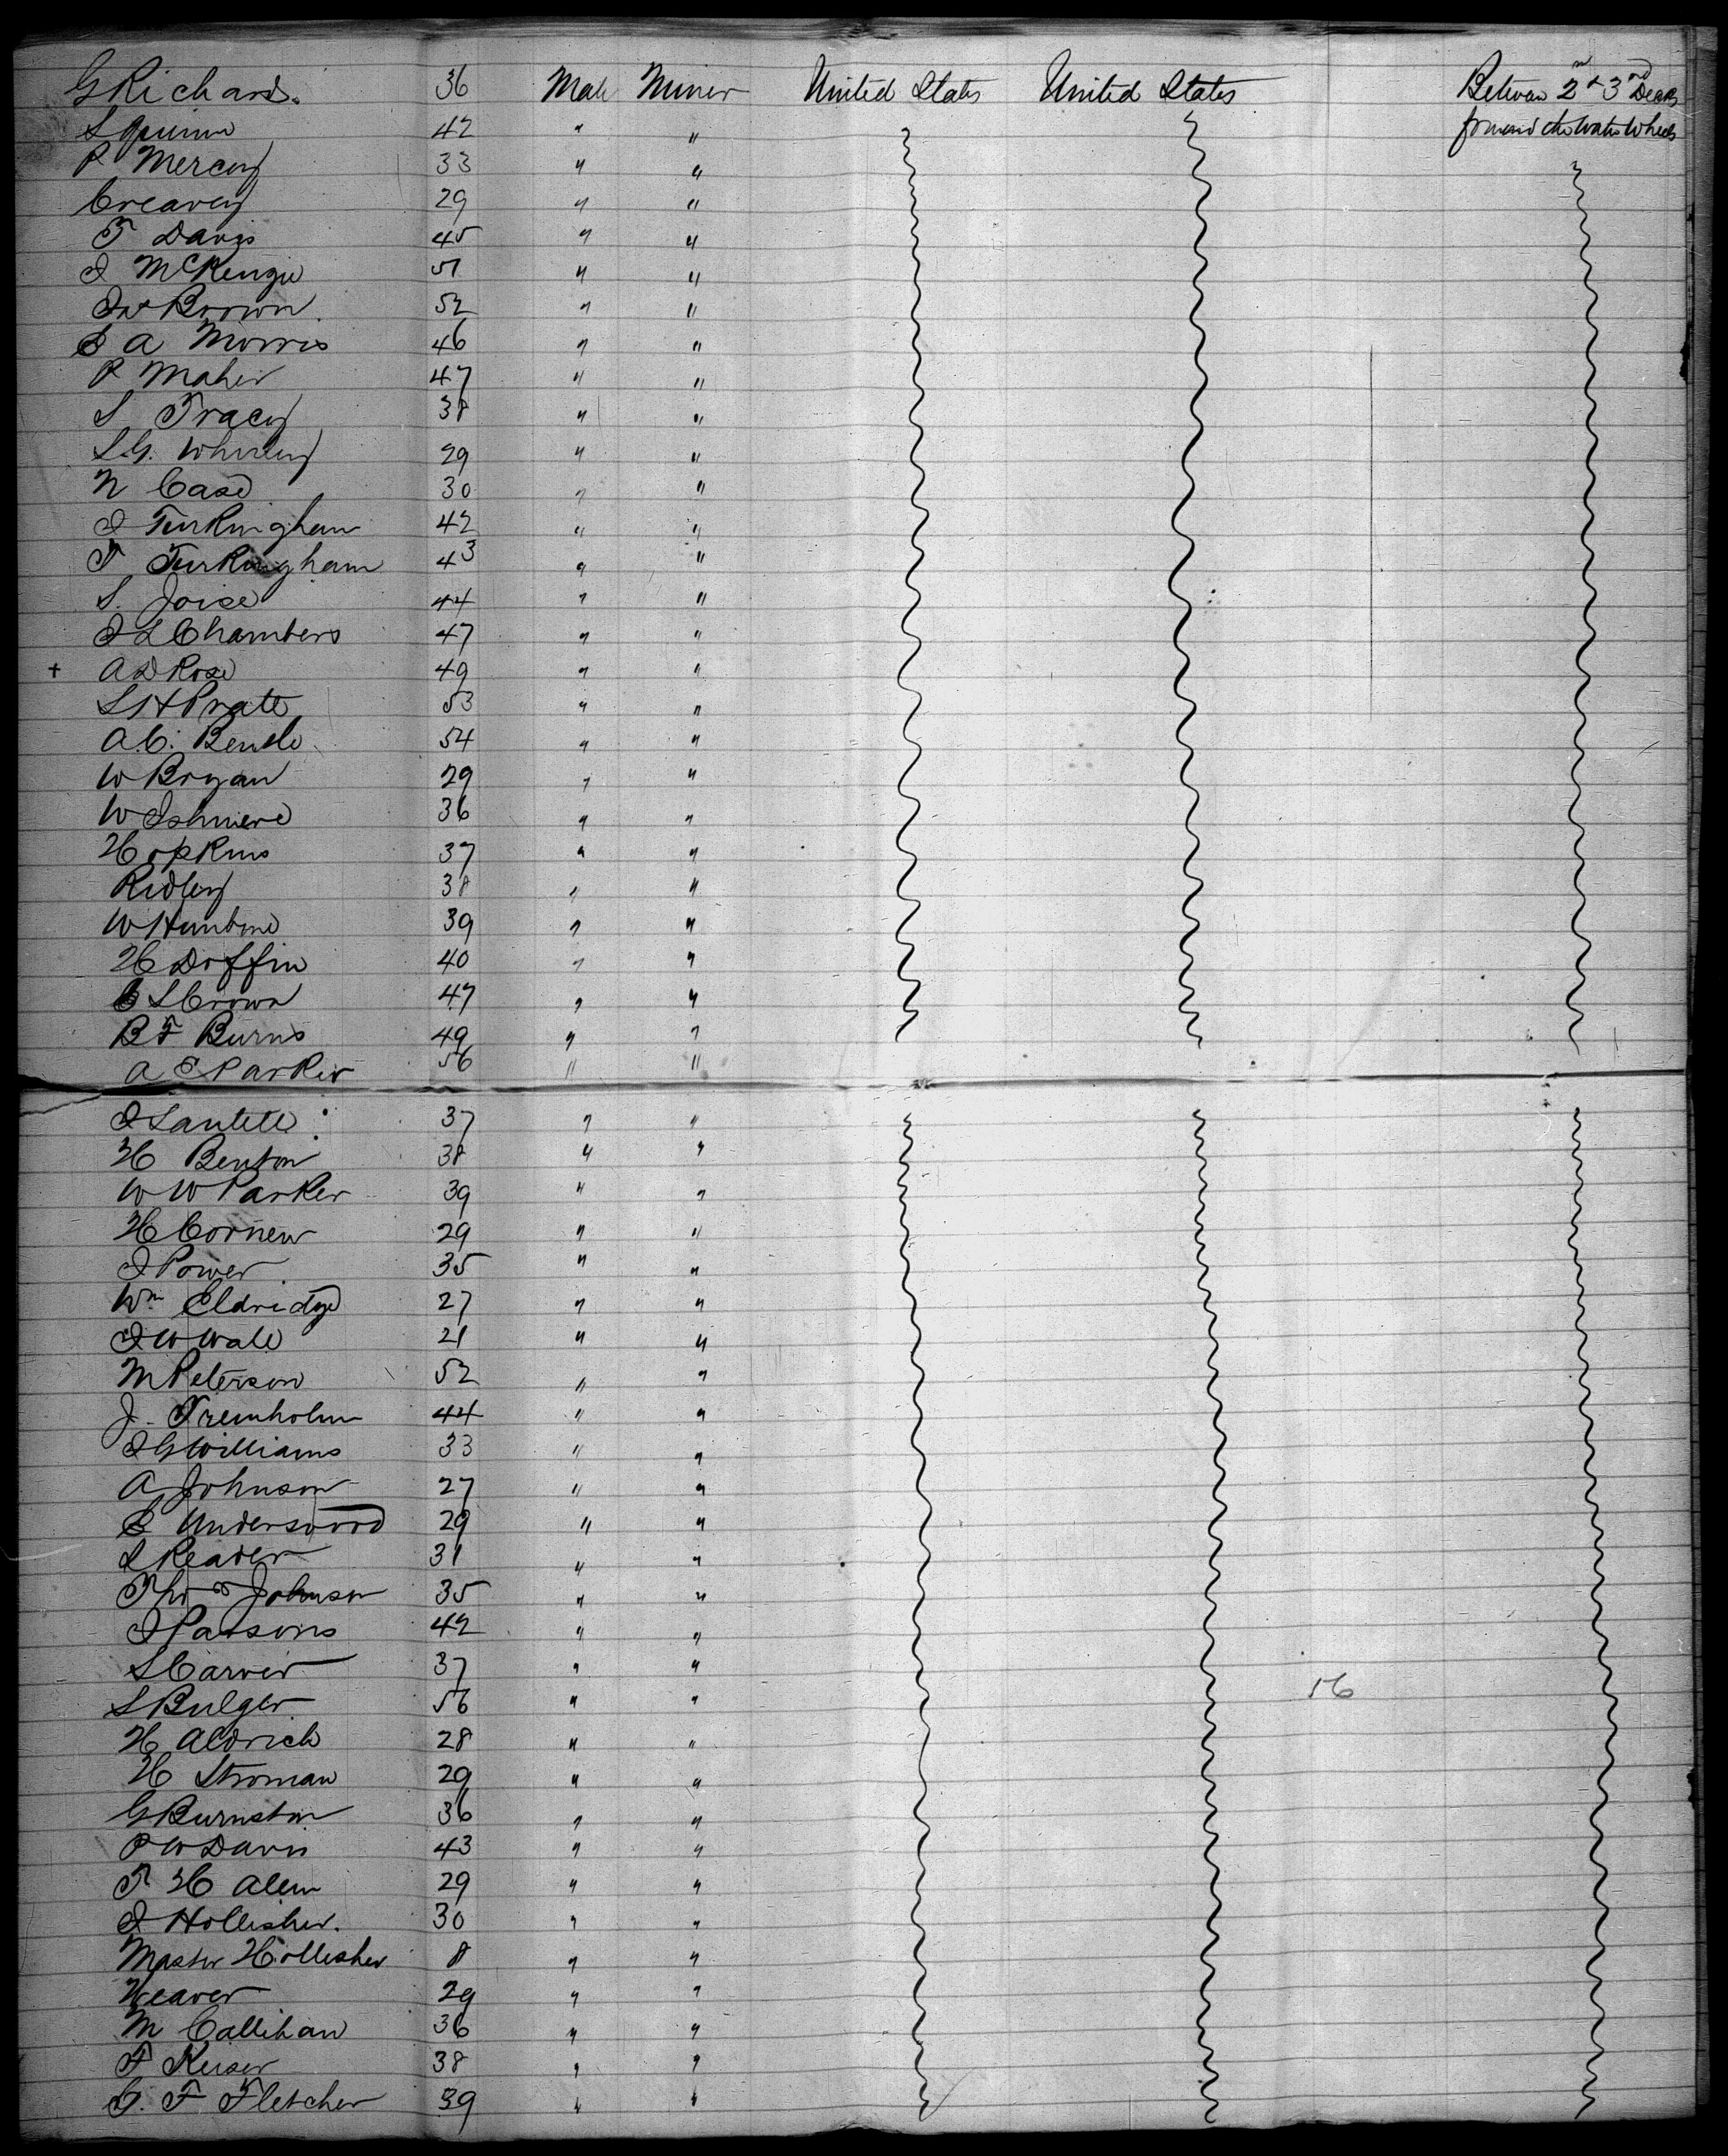 G Richards. 36 Male Miner United States United States Between 2nd & 3rd Decks
S Quinn 42 " " forward the Water Wheels
P Mercey 33 " "
Creavey 29 " "
T Davis 45 " "
J McKenzie 51 " "
Brown. 52 " "
A Morris 46 " "
P Maher 47 " "
S Tracey 38 " "
S.G. Whiting 29 " "
N Case 30 " "
J Turkingham 42 " "
T Turkingham 43 " "
S. Joise 44 " "
J L Chambers 47 " "
+ A D Rose 49 " "
S H Pratt 53 " "
A.C. 54 " "
W Bryan 29 " "
W 36 " "
Hopkins 37 " "
Ridley 38 " "
W 39 " "
H Doffin 40 " "
S Crown 47 " "
B F Burns 49 " "
A E Parker 56 " "
J 37 " "
H Benton 38 " "
W W Parker 39 " "
H Cornew 29 " "
J Power 35 " "
Wm Eldridge 27 " "
J W Wale 21 " "
M Peterson 52 " "
J. Tremholm 44 " "
J G Williams 33 " "
A Johnson 27 " "
Underwood 29 " "
S Reader 31 " "
Thos Johnson 35 " "
J Parsons 42 " "
S Carver 37 " "
S Bulger 56 " " 56
H Aldrich 28 " "
H Stroman 29 " "
G Burnston 36 " "
P W Davis 43 " "
T H Alen 29 " "
J Hollisher. 30 " "
Master Hollisher 8 " "
Weaver 29 " "
M Callihan 36 " "
F Keiser 38 " "
G. F Fletcher 39 " "